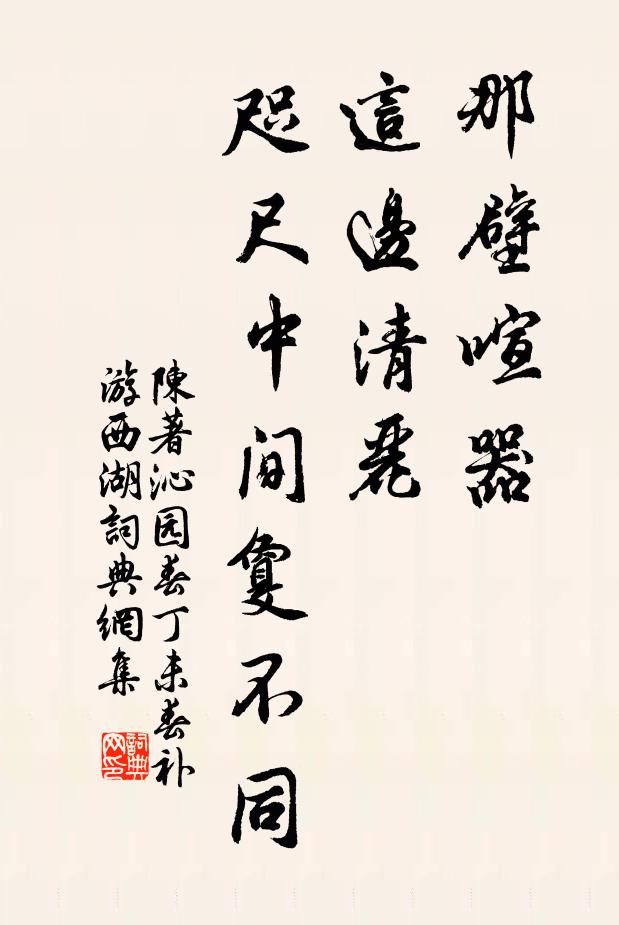 那壁喧嚣
這邊清麗
咫尺中间敻不同
陳著沁园春丁未春补
游西湖詞典網集
詞典网印